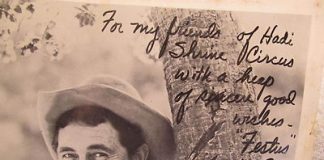 For my friends of Hadi
Shrine Circus
with a heap
of sincere good
wishes -
"Festus"